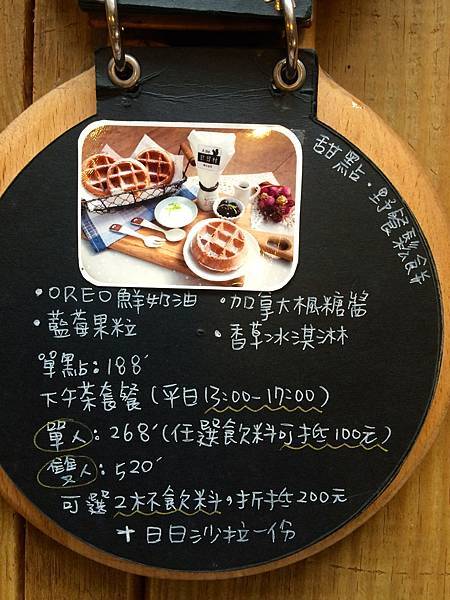 甜點・野餐鬆餅
・OREO鮮奶油 ・加拿大楓糖醬
・藍莓果粒 ・香草冰淇淋
單點：188'
下午茶套餐（平日13:00-17:00）
單人：268'（任選飲料可抵100元）
雙人：520'
可選2杯飲料，折抵200元
+日日沙拉一份